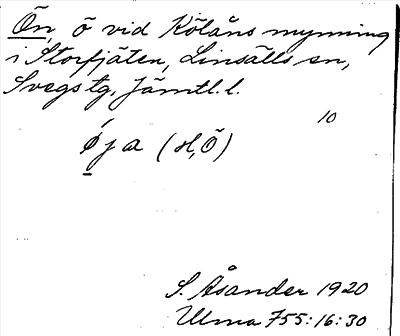 Ön, ö vid Kölåns mynning
i Storfjäten, Linsälls sn,
Svegs tg, Jämtl. l.
10
ǿja (H, Ö)
S. Åsander 1920
Ulma 755:16:30